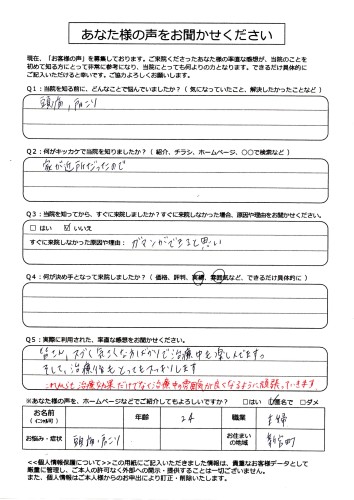 あなた様の声をお聞かせください
現在、「お客様の声」を募集しております。ご来院くださったあなた様の率直な感想が、当院のことを
初めて知る方にとって非常に参考になり、当院にとっても何よりの力となります。できるだけ具体的に
ご記入いただけると幸いです。ご協力よろしくお願いします。
Q1:当院を知る前に、どんなことで悩んでいましたか?( 気になっていたこと、解決したかったことなど )
頭痛、肩こり
Q2:何がキッカケで当院を知りましたか?( 紹介、チラシ、ホームページ、〇〇で検索など )
家が近所だったので
Q3:当院を知ってから、すぐに来院しましたか?すぐに来院しなかった場合、原因や理由をお聞かせください。
□ はい ☑ いいえ
すぐに来院しなかった原因や理由: ガマンができると思い
Q4:何が決め手となって来院しましたか?( 価格、評判、実績、雰囲気など、できるだけ具体的に )
Q5:実際に利用された、率直な感想をお聞かせください。
皆さん、スゴく気さくな方ばかりで治療中も楽しんでます。
そして、治療後はとってもスッキリします
これからも治療効果だけでなく治療中の雰囲気が良くなるように頑張っていきます
※あなた様の声を、ホームページなどでご紹介してもよろしいですか? □ はい □ 匿名で □ ダメ
お名前
(イニシャル可)
年齢
24
職業
主婦
お悩み・症状
頭痛・肩こり
お住まい
の地域
<<個人情報保護について>>この用紙にご記入いただきました情報は、貴重なお客様データとして
厳重に管理し、ご本人の許可なく外部への開示・提供することは一切ございません。
また、個人情報はご本人様からのお申出により訂正・削除いたします。